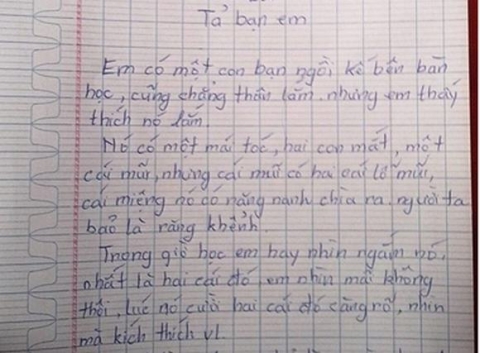 Tả bạn em
Em có một con bạn ngồi kế bên bàn
học, cũng chẳng thân lắm nhưng em thấy
thích nó lắm.
Nó có một mái tóc, hai con mắt, một
cái mũi, nhưng cái mũi có hai cái lỗ mũi,
cái miệng nó có răng nanh chìa ra người ta
bảo là răng khểnh
Trong giờ học em hay nhìn ngắm nó,
nhất là hai cái đó, em nhìn mãi không
thôi, lúc nó cười hai cái đó càng rõ, nhìn
mà kích thích vl.